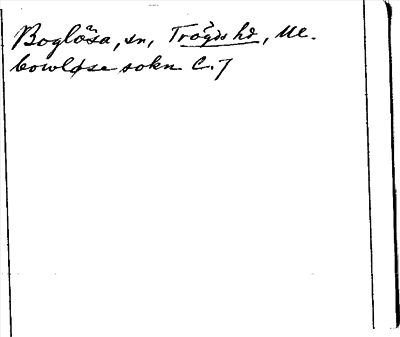 Boglösa, sn, Trögds hd, Upl.
bowløse sokn C. 7